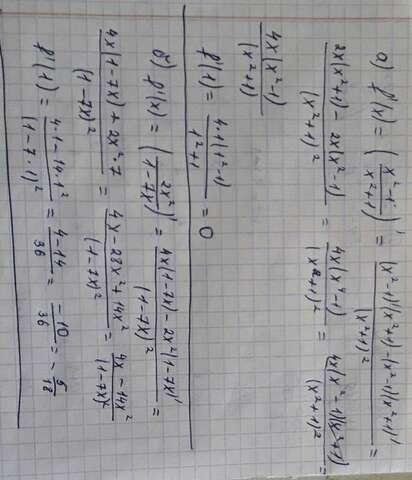 а) f'(x) = ((x²-1)/(x²+1))' = ((x²-1)'(x²+1)-(x²-1)(x²+1)')/(x²+1)² =
(2x(x²+1)-2x(x²-1))/(x²+1)² = 4x(x⁴-1)/(x²+1)² = 4x(x²-1)(x²+1)/(x²+1)² =
4x(x²-1)/(x²+1)
f'(1) = 4·1(1²-1)/(1²+1) = 0
б) f'(x) = (2x²/(1-7x))' = (4x(1-7x)-2x²(1-7x)')/(1-7x)² =
(4x(1-7x)+2x²·7)/(1-7x)² = (4x-28x²+14x²)/(1-7x)² = (4x-14x²)/(1-7x)²
f'(1) = (4·1-14·1²)/(1-7·1)² = (4-14)/36 = -10/36 = -5/18